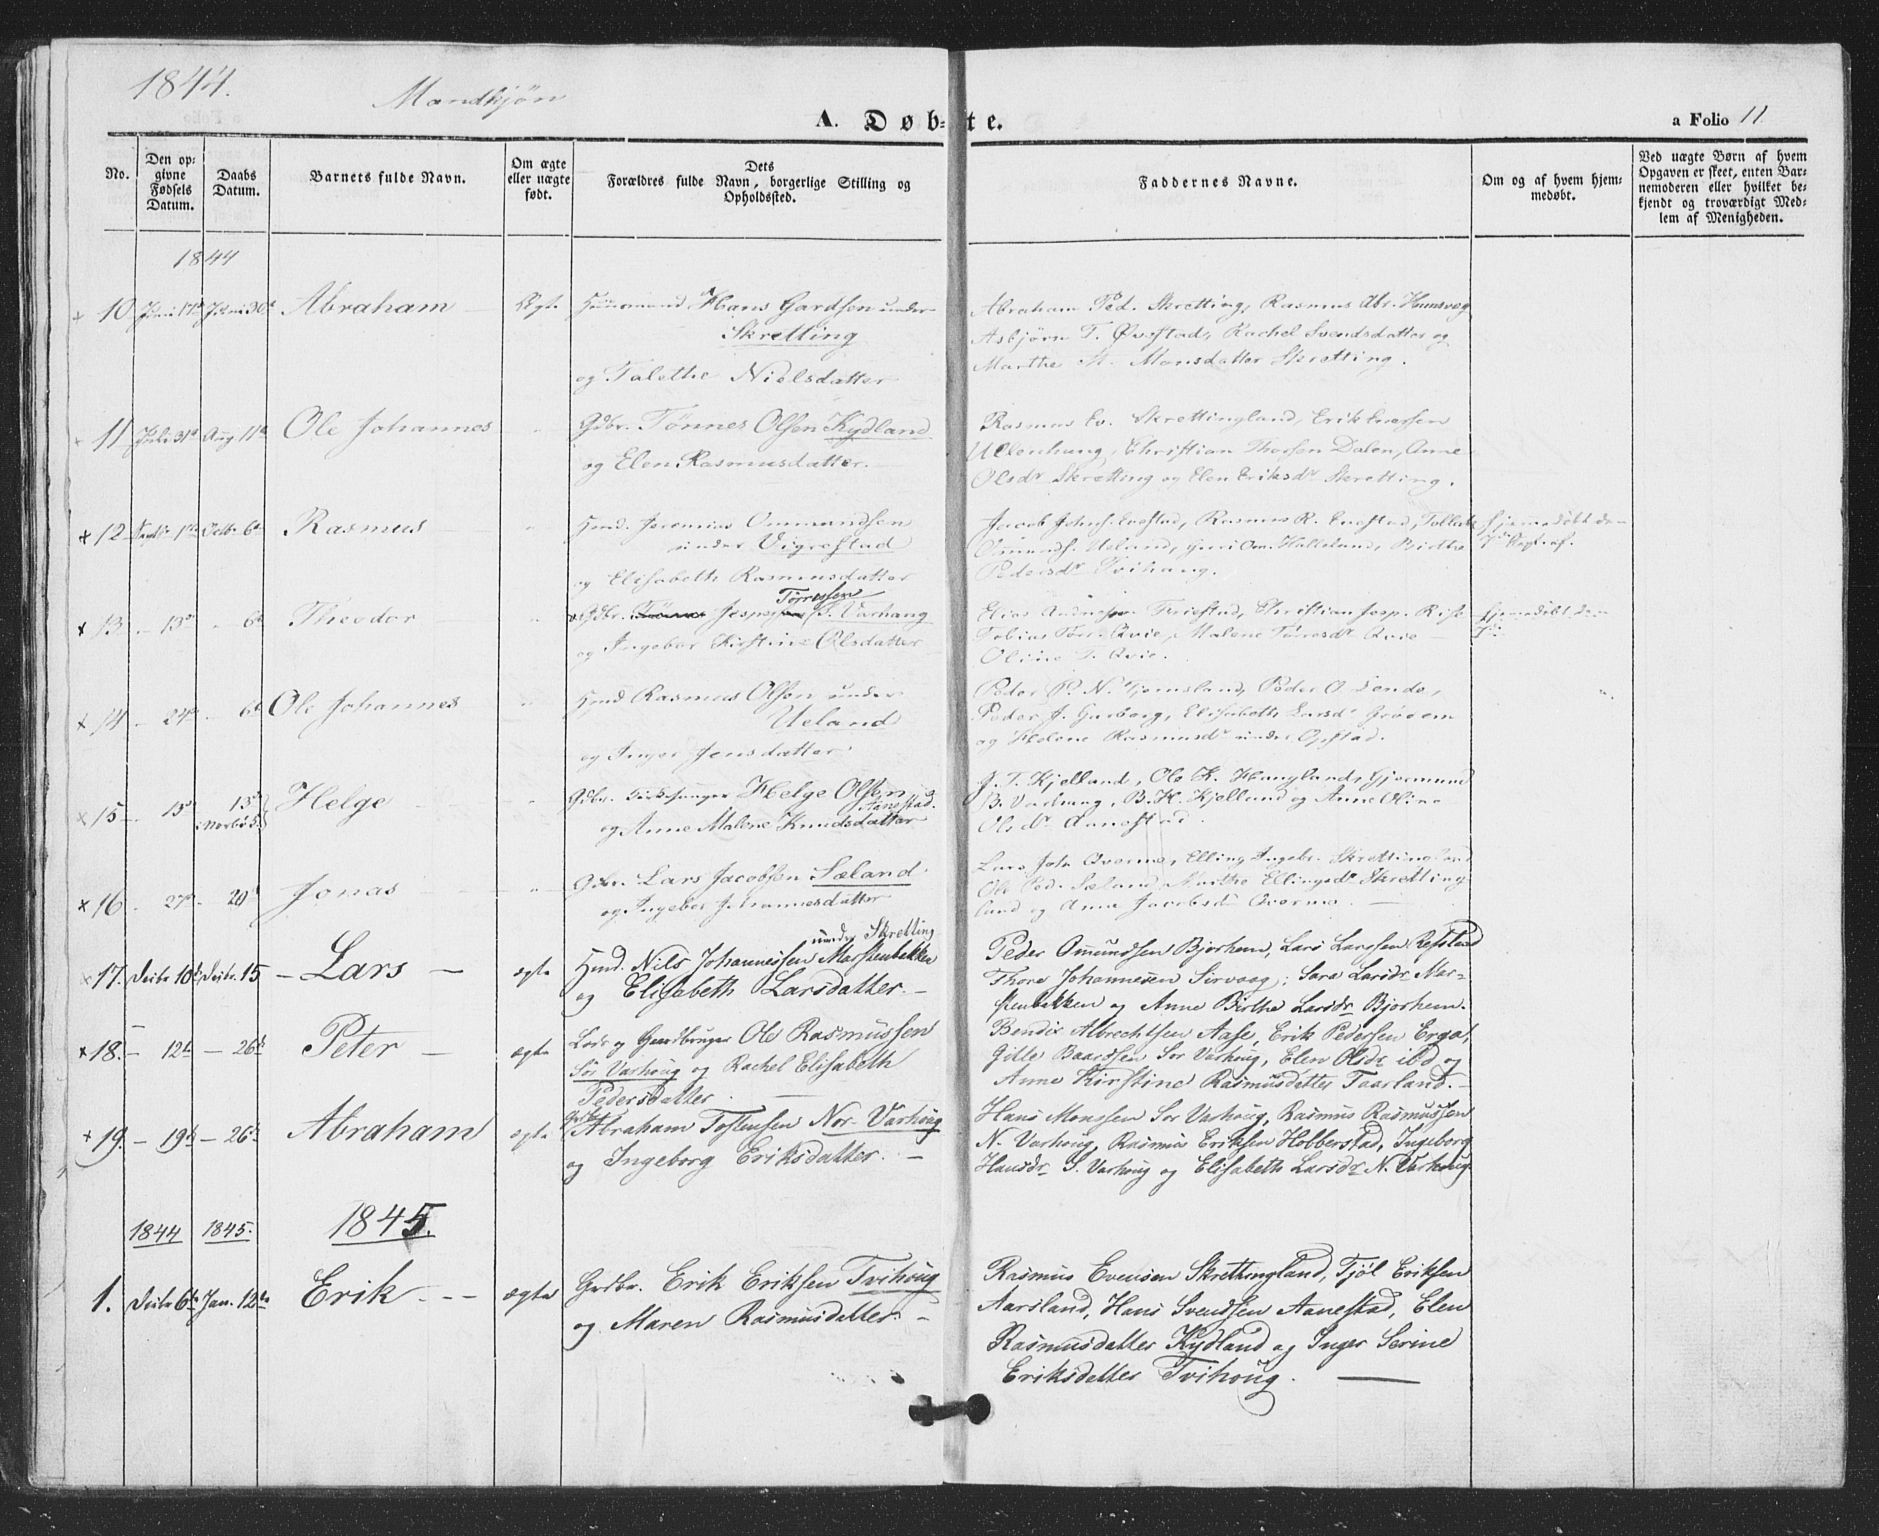 1844.
Mandkjøn
A. Døbte.
a Folio 11
No.
Den opgivne Fødsels Datum.
Daabs Datum.
Barnets fulde Navn.
Om ægte eller uægte født.
Dets Forældres fulde Navn, borgerlige Stilling og Opholdssted.
Faddernes Navne.
Om og af hvem hjemmedøbt.
Ved uægte Børn af hvem Opgaven er skeet, enten Barnemoderen eller hvilket bekjendt og troværdigt Medlem af Menigheden.
1844
10 Juni 17de Juni 30te Abraham Ægte Huusmand Hans Gardsen under
Skretting
og Talethe Nielsdatter
Abraham Ped. Skretting, Rasmus Abr. Homsvæg
Asbjørn T. Øvestad, Rachel Svendsdatter og
Marthe M. Monsdatter Skretting.
11 Juli 31te Aug. 11te Ole Johannes Gdbr. Tønnes Olsen Kydland
og Elen Rasmusdatter.
Rasmus Ev. Skrettingland, Erik Evertsen
Ullenhaug, Christian Thorsen Dalen, Anne
Olsdr Skretting og Elen Eriksdr Skretting.
12 Septbr 1ste Octbr 6te Rasmus Hmd. Jeremias Ommundsen
under Vigrestad
og Elisabeth Rasmusdatter
Jacob Johns. Evestad, Rasmus R. Evestad, Tollak
Omunds. Ueland, Guri Om. Halleland, Birthe
Pedersdr Tvihaug.
Hjemmedøbt den
7de Septr af.
13 - 13de - 6te Theodor Gdbr. Jesper Tørresen S. Varhaug
og Ingebor Kirstine Olsdatter
Elias Andreasen Friestad, Christian Jesp. Riise
Tobias Tørr. Qvie, Malene Tørresdr Qvie
Oline T. Qvie.
Hjemmedøbt den
14 - 24de - 6te Ole Johannes Hmd Rasmus Olsen under
Ueland
og Inger Jensdatter
Peder P. N. Tjemsland, Peder O. Lende,
Peder J. Garborg, Elisabeth Larsdr Grødem
og Helene Rasmusdr under Opstad.
15 - 15de 13de Novbr 5. Helge Gdbr. Kirkesanger Helge Olsen
Aanestad.
og Anne Malene Knudsdatter
G. T. Kjelland, Ole K. Haugland, Gjermund
B. Varhaug, B. H. Kjelland og Anne Oline
Olsdr Aanestad.
16 - 27de - 20de Jonas Gdbr. Lars Jacobsen Sæland
og Ingebor Johannesdatter
Lars Joh. Qvermo, Elling Ingebr. Skrettingland
Ole Ped. Sæland, Marthe Ellingsdr Skretting-
land og Anne Jacobsdr Qvermo.
17. Decbr 10de Decbr. 15 - Lars - ægte
under Skretting
Hmd. Nils Johannessen Marstenbekken
og Elisabeth Larsdatter. -
Peder Omundsen Bjorhem, Lars Larssen Refsland
Thore Johannesen Sirvaag; Sara Larsdr Mar-
stenbekken og Anne Birthe Larsdr Bjorhem.
18. - 12te - 26de Peter - ægte Lods og Gaardbruger Ole Rasmussen
Sør Varhoug og Rachel Elisabeth
Pedersdatter.
Bendix Albrechtsen Aase, Erik Pedersen Erga,
Gitle Baardsen Sør Varhoug, Elen Olsdr ibd og
Anne Kirstine Rasmusdatter Taarland. -
19. - 19de - 26de Abraham ægte Gdbr. Abraham Tostensen Nor. Varhoug
og Ingeborg Eriksdatter. -
Hans Monssen Sør Varhoug, Rasmus Rasmussen
N. Varhoug, Rasmus Eriksen Hobberstad, Ingeborg
Hansdr S. Varhoug og Elisabeth Larsdr N. Varhoug
1844 1845. 1845.
1. Decbr 6te Jan. 12te Erik. - - ægte Grdbr. Erik Eriksen Tvihoug
og Maren Rasmusdatter. -
Rasmus Evensen Skrettingland, Tjøl Eriksen
Aarsland, Hans Svendsen Aanestad, Elen
Rasmusdatter Kydland og Inger Serine
Eriksdatter Tvihoug.